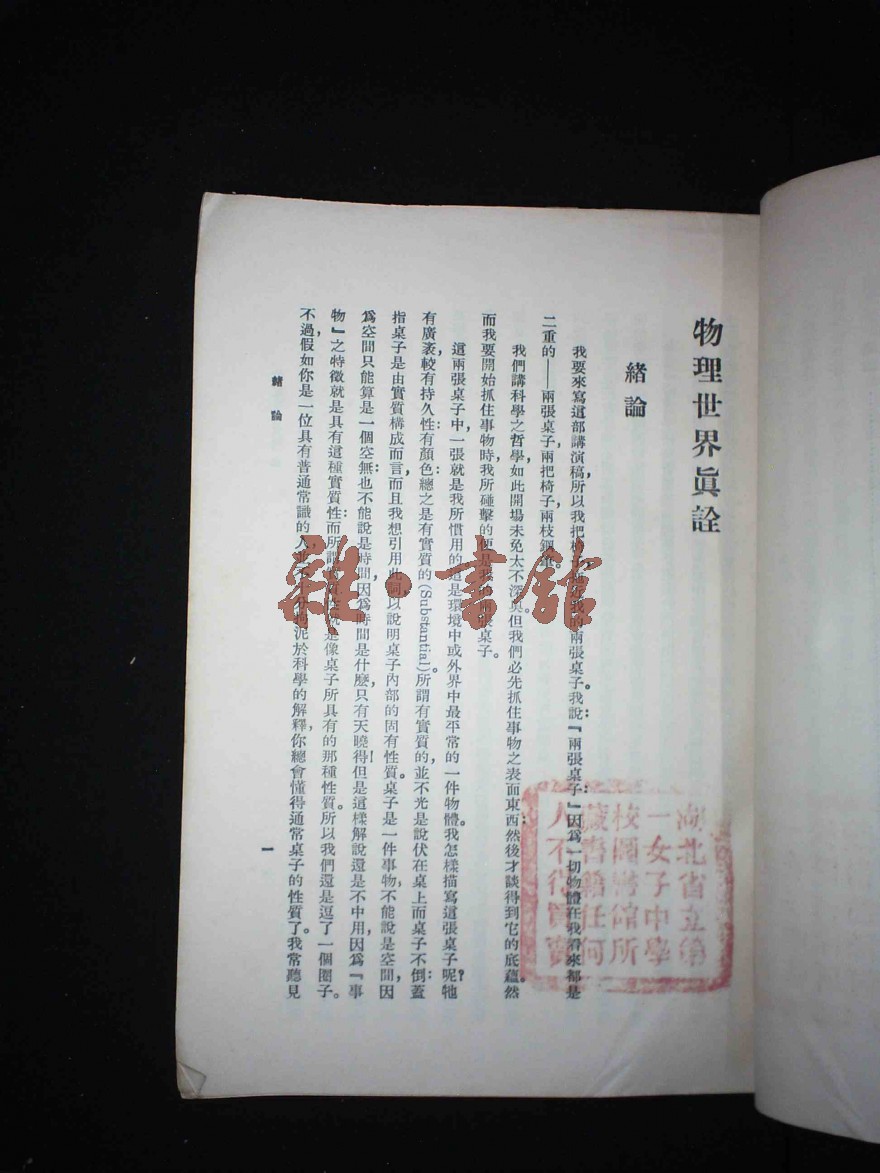 物理世界眞詮
緒論
我要來寫這部講演稿，所以我把椅我的兩張桌子。我說：『兩張桌子』因爲一切物體在我看來都是
二重的——兩張桌子，兩把椅子，兩枝鋼筆。
我們講科學之哲學，如此開場未免太不深奧但我們必先抓住事物之表面東西然後才談得到它的底蘊。然
而我要開始抓住事物時，我所碰擊的便是我的兩張桌子。
這兩張桌子中，一張就是我所慣用的這是環境中或外界中最平常的一件物體。我怎樣描寫這張桌子呢？牠
有廣袤；較有持久性；有顏色；總之是有實質的(Substantial)。所謂有實質的，並不光是說伏在桌上而桌子不倒；蓋
指桌子是由實質構成而言，而且我想引用此詞以說明桌子內部的固有性質。桌子是一件事物，不能說是空間，因
爲空間只能算是一個空無；也不能說是時間，因爲時間是什麼，只有天曉得！但是這樣解說還是不中用，因爲『事
物』之特徵就是具有這種實質性；而所謂實質性就是像桌子所具有的那種性質。所以我們還是逗了一個圈子。
不過，假如你是一位具有普通常識的人，並不十分拘泥於科學的解釋，你總會懂得通常桌子的性質了。我常聽見
緒論
一
湖北省立第
一女子中學
校圖書館所
藏書籍任何
人不得買賣
雜·書館